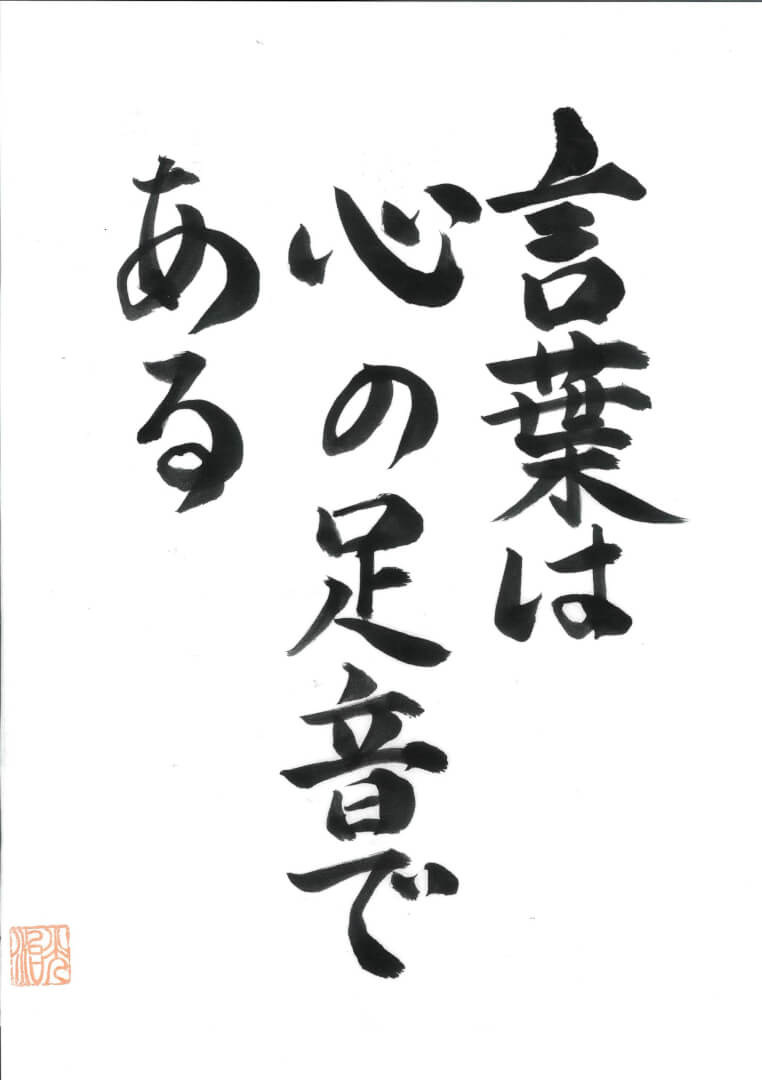 言葉は
心の足音で
ある